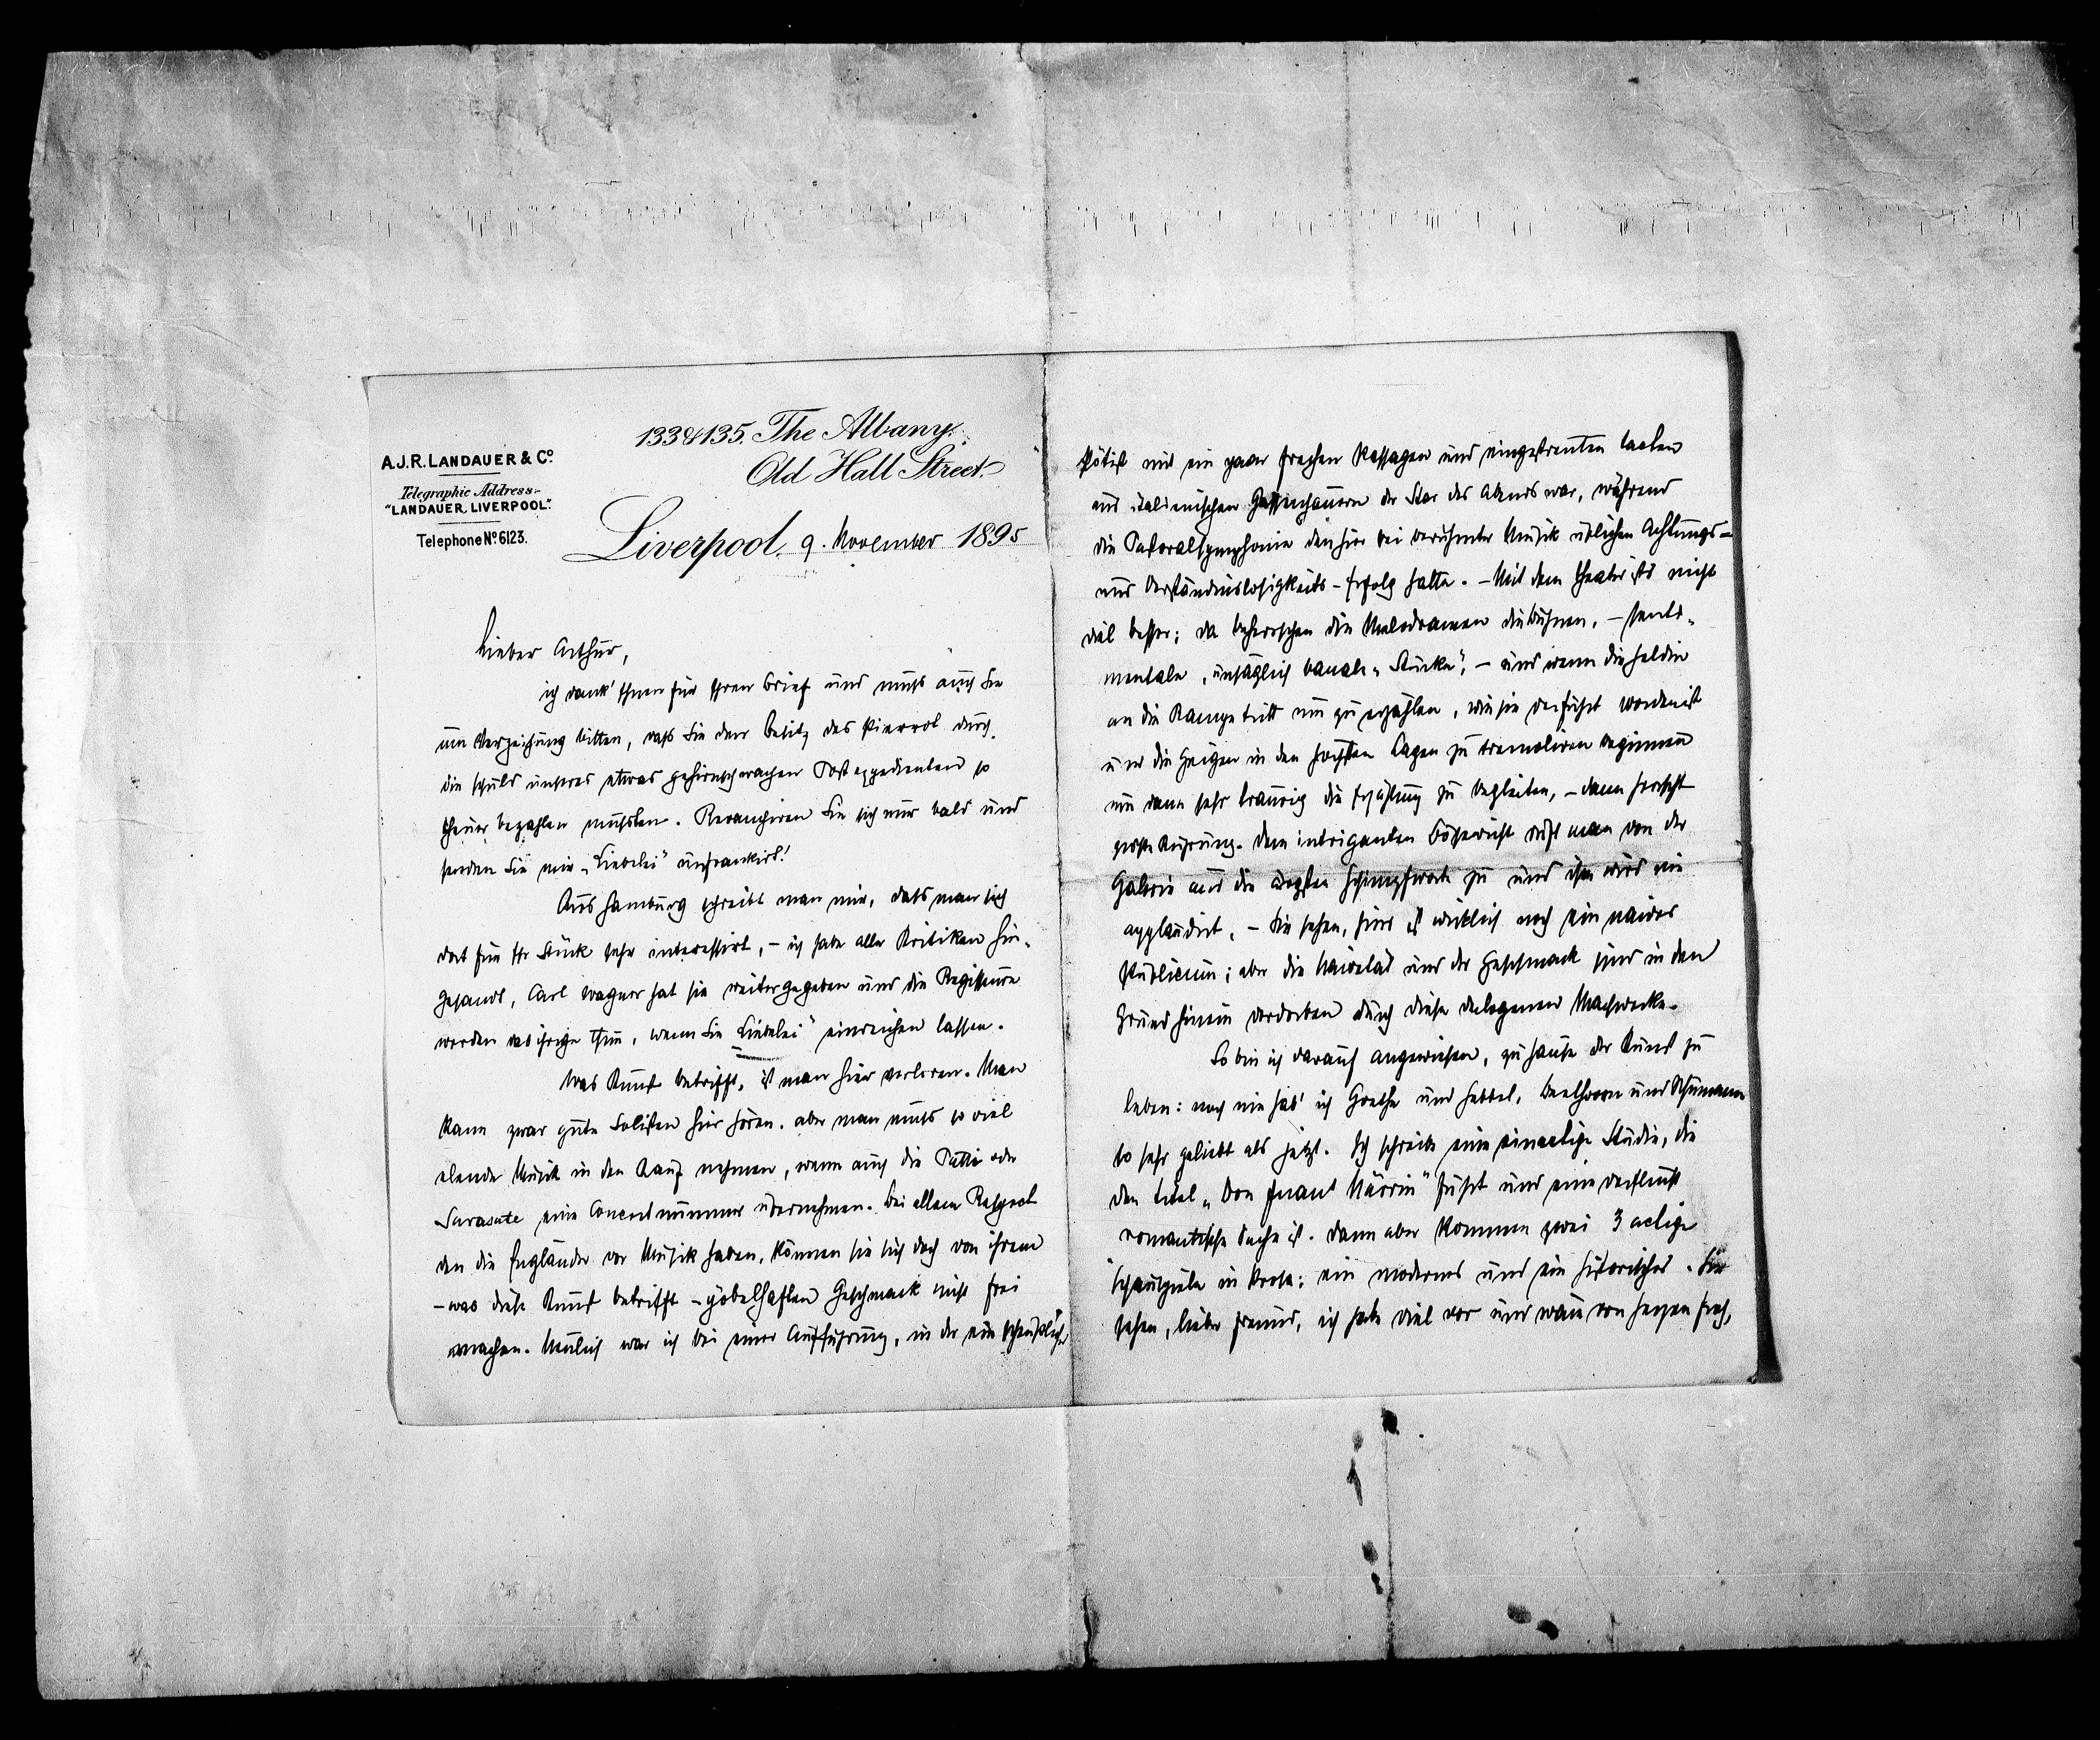 A.J.R. LANDAUER & Co.
Telegraphic Address:-
"LANDAUER, LIVERPOOL."
Telephone No. 6123.
133 & 135. The Albany.
Old Hall Street.
Liverpool, 9. November 1895
Lieber Arthur,
ich dank' Ihnen für Ihren Brief und muß auch Sie
um Verzeihung bitten, daß Sie den Besitz des Pierrot durch
die Schuld unseres etwas gehirnschwachen Postexpedienten so
theuer bezahlen mußten. Revanchiren Sie sich nur bald und
senden Sie mir „Liebelei" unfrankirt!
Aus Hamburg schreibt man mir, daß man sich
dort für Ihr Stück sehr interessirt, – ich habe alle Kritiken hin-
gesandt, Carl Wagner hat sie weitergegeben und die Regisseure
werden das ihrige thun, wenn Sie „Liebelei" einreichen lassen.
Was Kunst betrifft, ist man hier verloren. Man
kann zwar gute Solisten hier hören, aber man muß so viel
elende Musik in den Kauf nehmen, wenn auch die Patti oder
Sarasate eine Concertnummer übernehmen. Bei allem Respect
den die Engländer vor Musik haben, können sie sich doch von ihrem
– was diese Kunst betrifft – pöbelhaften Geschmack nicht frei
machen. Neulich war ich bei einer Aufführung, in der ein scheußlicher
Flötist mit ein paar frechen Passagen und eingestreuten
aus italienischen Gassenhauern der Star des Abends war, während
die Pastoralsymphonie den hier bei berühmter Musik üblichen Achtungs-
und Verständnislosigkeits-Erfolg hatte. – Mit dem Theater ists nicht
viel besser; da beherrschen die Melodramen die Bühnen, – senti-
mentale, unsäglich banale „Stücke", – und wenn die Heldin
an die Rampe tritt um zu erzählen, wie sie verführt worden ist
und die Geigen in den höchsten Lagen zu tremoliren beginnen
um dann sehr traurig die Erzählung zu begleiten, – dann herrscht
große Rührung. Dem intriganten Bösewicht ruft man von der
Galerie aus die ärgsten Schimpfworte zu und ihm wird nie
applaudirt, – Sie sehen, hier ist wirklich noch ein naives
Publicum; aber die Naivetät und der Geschmack sind in den
Grund hinein verdorben durch diese verlogenen Machwerke.
So bin ich darauf angewiesen, zu Hause der Kunst zu
leben: noch nie hab' ich Goethe und Hebbel, Beethoven und Schumann
so sehr geliebt als jetzt. Ich schreibe eine einactige Studie, die
den Titel „Don Juans Närrin" führt und eine verflucht
romantische Sache ist. Dann aber kommen zwei 3 actige
Schauspiele in Prosa: ein modernes und ein historisches. Sie
sehen, lieber Freund, ich habe viel vor und wäre von Herzen froh,